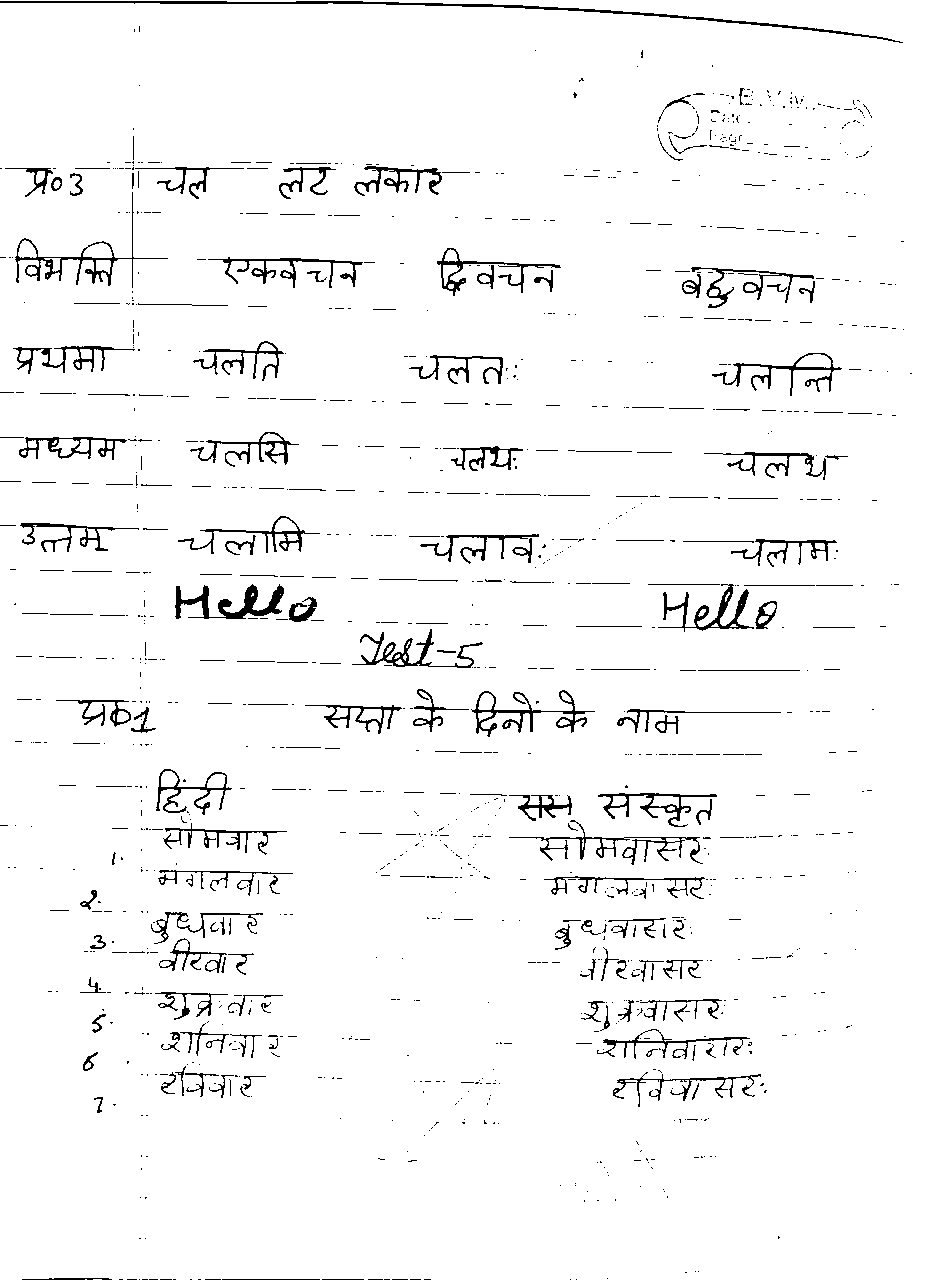 B.V.M.
Date
Page
प्र०3 चल लट लकार
विभक्ति एकवचन द्विवचन बहुवचन
प्रथमा चलति चलतः चलन्ति
मध्यम चलसि चलथः चलथ
उत्तम चलामि चलावः चलामः
Hello Hello
Test-5
प्र०1 सप्ता के दिनों के नाम
हिंदी सस संस्कृत
1. सोमवार सोमवासरः
2. मंगलवार मंगलवासरः
3. बुधवार बुधवासरः
4. वीरवार वीरवासर
5. शुक्रवार शुक्रवासरः
6 शनिवार शनिवासरः
7. रविवार रविवासरः